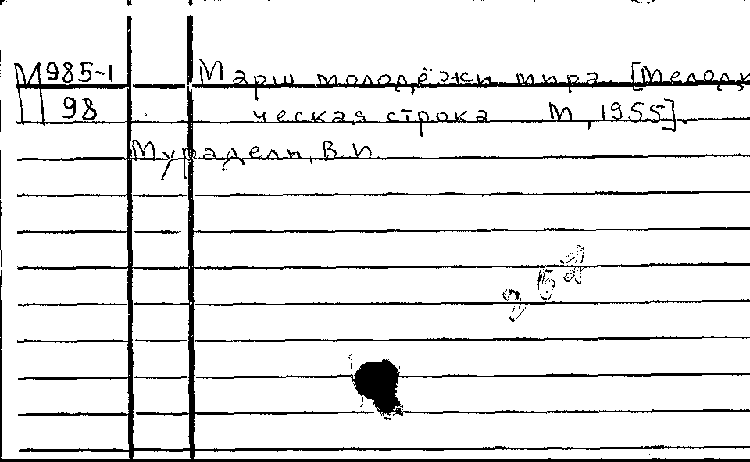 М 985-1 Марш молодёжи мира. [Мелоди
98 ческая строка М, 1955].
Мурадели, В.И.